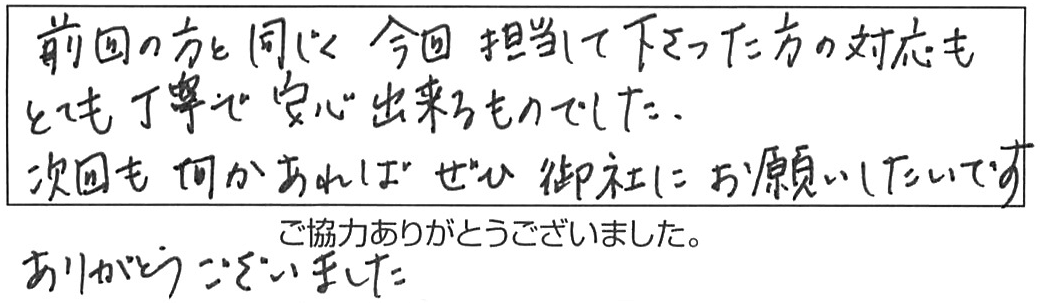 前回の方と同じく 今回 担当して下さった方の対応も
とても丁寧で安心出来るものでした.
次回も何かあればぜひ御社にお願いしたいです
ご協力ありがとうございました。
ありがとうございました